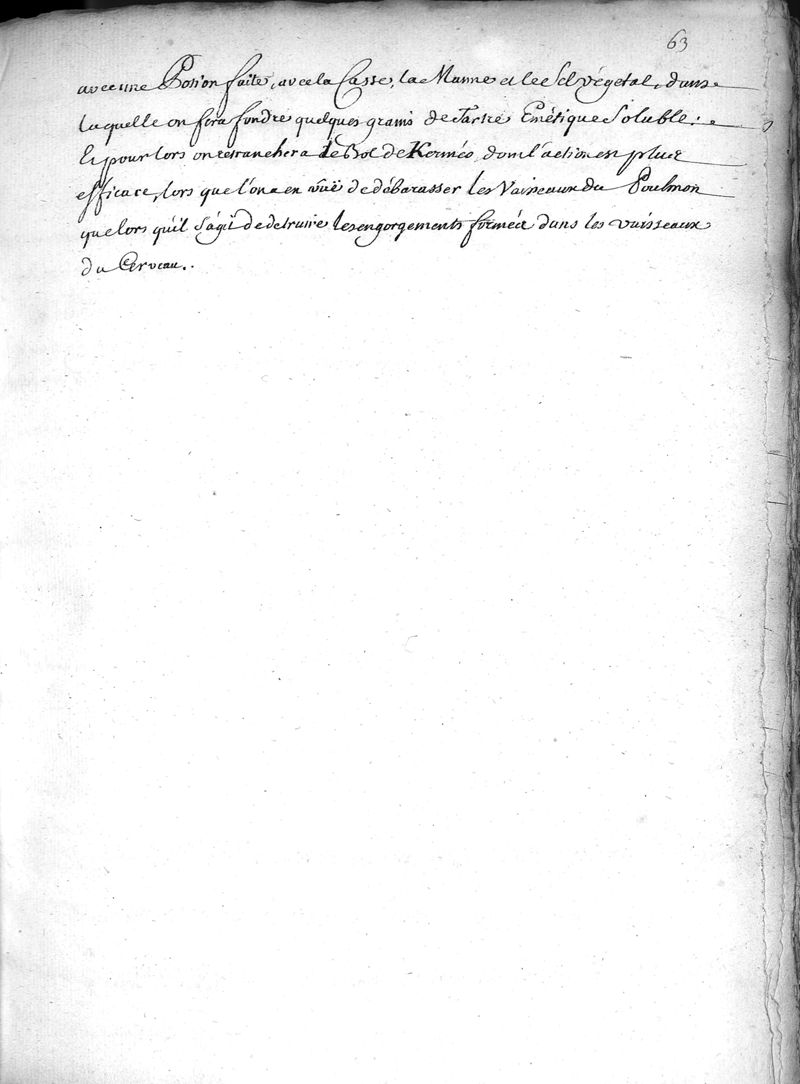 63
avec une Potion faite, avec la Casse, la Manne et le Sel végétal, dans
laquelle on fera fondre quelques grains de Tartre Emétique Soluble.
Et pour lors on retranchera le Bol de Kermés, dont l'action est plus
efficace, lors que l'on a en vûë de débarasser les Vaisseaux du Poulmon
que lors qu'il s'agit de detruire les engorgements formés dans les vaisseaux
du Cerveau..